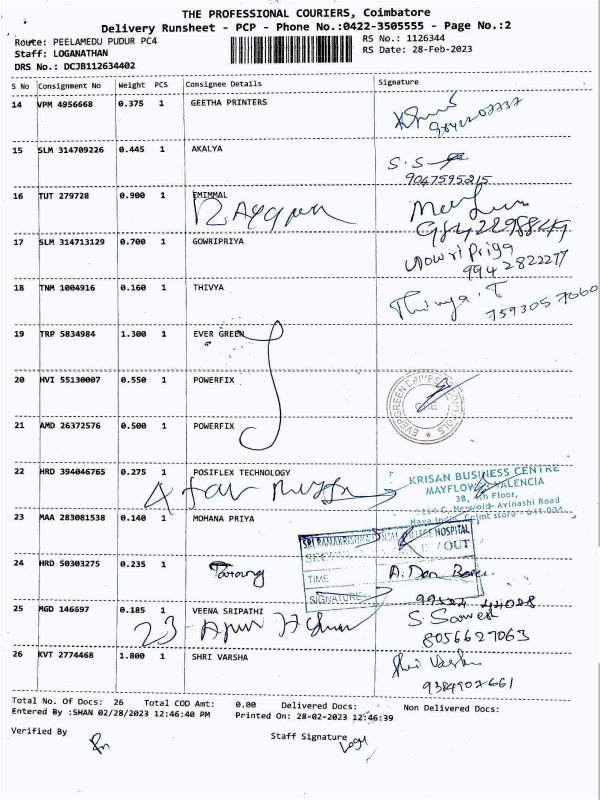 THE PROFESSIONAL COURIERS, Coimbatore
Delivery Runsheet - PCP - Phone No.:0422-3505555 - Page No.:2
Route: PEELAMEDU PUDUR PC4 RS No.: 1126344
Staff: LOGANATHAN RS Date: 28-Feb-2023
DRS No.: DCJB112634402
S No Consignment No Weight PCS Consignee Details Signature
14 VPM 4956668 0.375 1 GEETHA PRINTERS
15 SLM 314709226 0.445 1 AKALYA
S.S
9047595215
16 TUT 279728 0.900 1 EMIMMAL
17 SLM 314713129 0.700 1 GOWRIPRIYA
Gowri Priya
9942822277
18 TNM 1004916 0.160 1 THIVYA
Thivya.T
7593057060
19 TRP 5834984 1.300 1 EVER GREEN
20 HVI 55130007 0.550 1 POWERFIX
21 AMD 26372576 0.500 1 POWERFIX
22 HRD 394046765 0.275 1 POSIFLEX TECHNOLOGY
KRISAN BUSINESS CENTRE
MAYFLOWER VALENCIA
3B, 4th Floor,
Avinashi Road
23 MAA 283081538 0.140 1 MOHANA PRIYA
SRI RAMAKRISHNA HOSPITAL
OUT
24 HRD 50303275 0.235 1
TIME
SIGNATURE
25 MGD 146697 0.185 1 VEENA SRIPATHI
8056627063
26 KVT 2774468 1.800 1 SHRI VARSHA
Shri Varsha
Total No. Of Docs: 26 Total COD Amt: 0.00 Delivered Docs: Non Delivered Docs:
Entered By :SHAN 02/28/2023 12:46:40 PM Printed On: 28-02-2023 12:46:39
Verified By Staff Signature